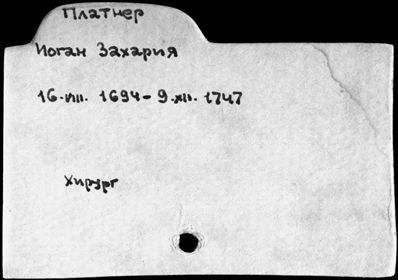 Платнер
Иоган Захария
16.VIII. 1694 - 9.XII. 1747
Хирург